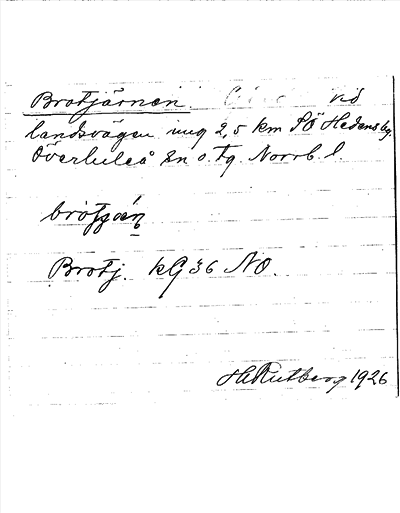 Brotjärnen vid
landsvägen ung 2,5 km SÖ Hedensby.
Överluleå Sn o. Tg. Norrb. l.
Brotj. kG 36 NO.
H Rutberg 1926